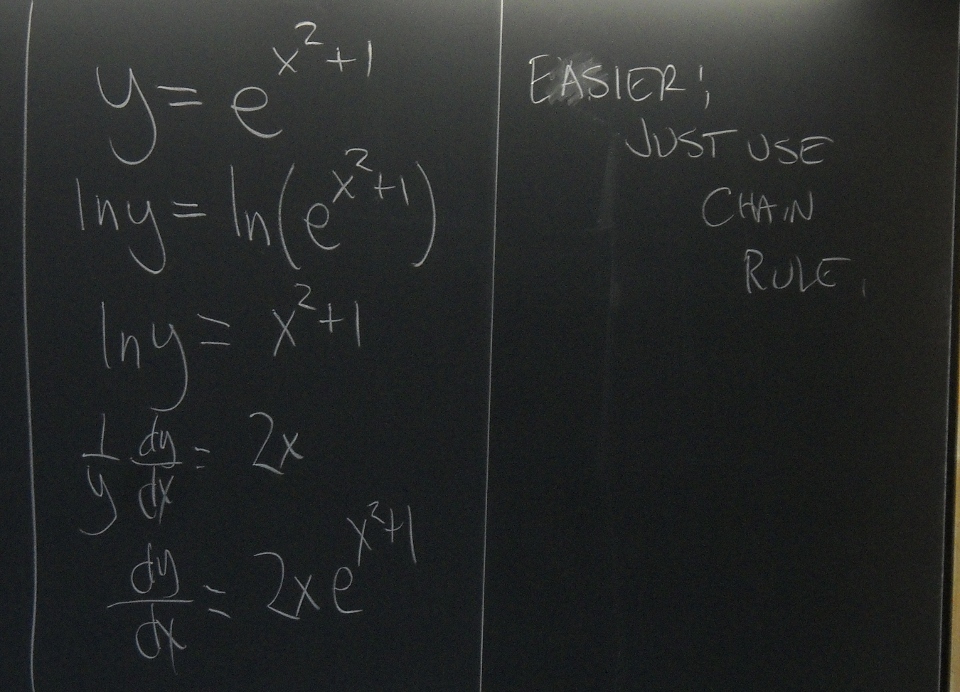 y = e^{x^2+1}
ln y = ln(e^{x^2+1})
ln y = x^2+1
1/y dy/dx = 2x
dy/dx = 2x e^{x^2+1}
EASIER;
JUST USE
CHAIN
RULE.